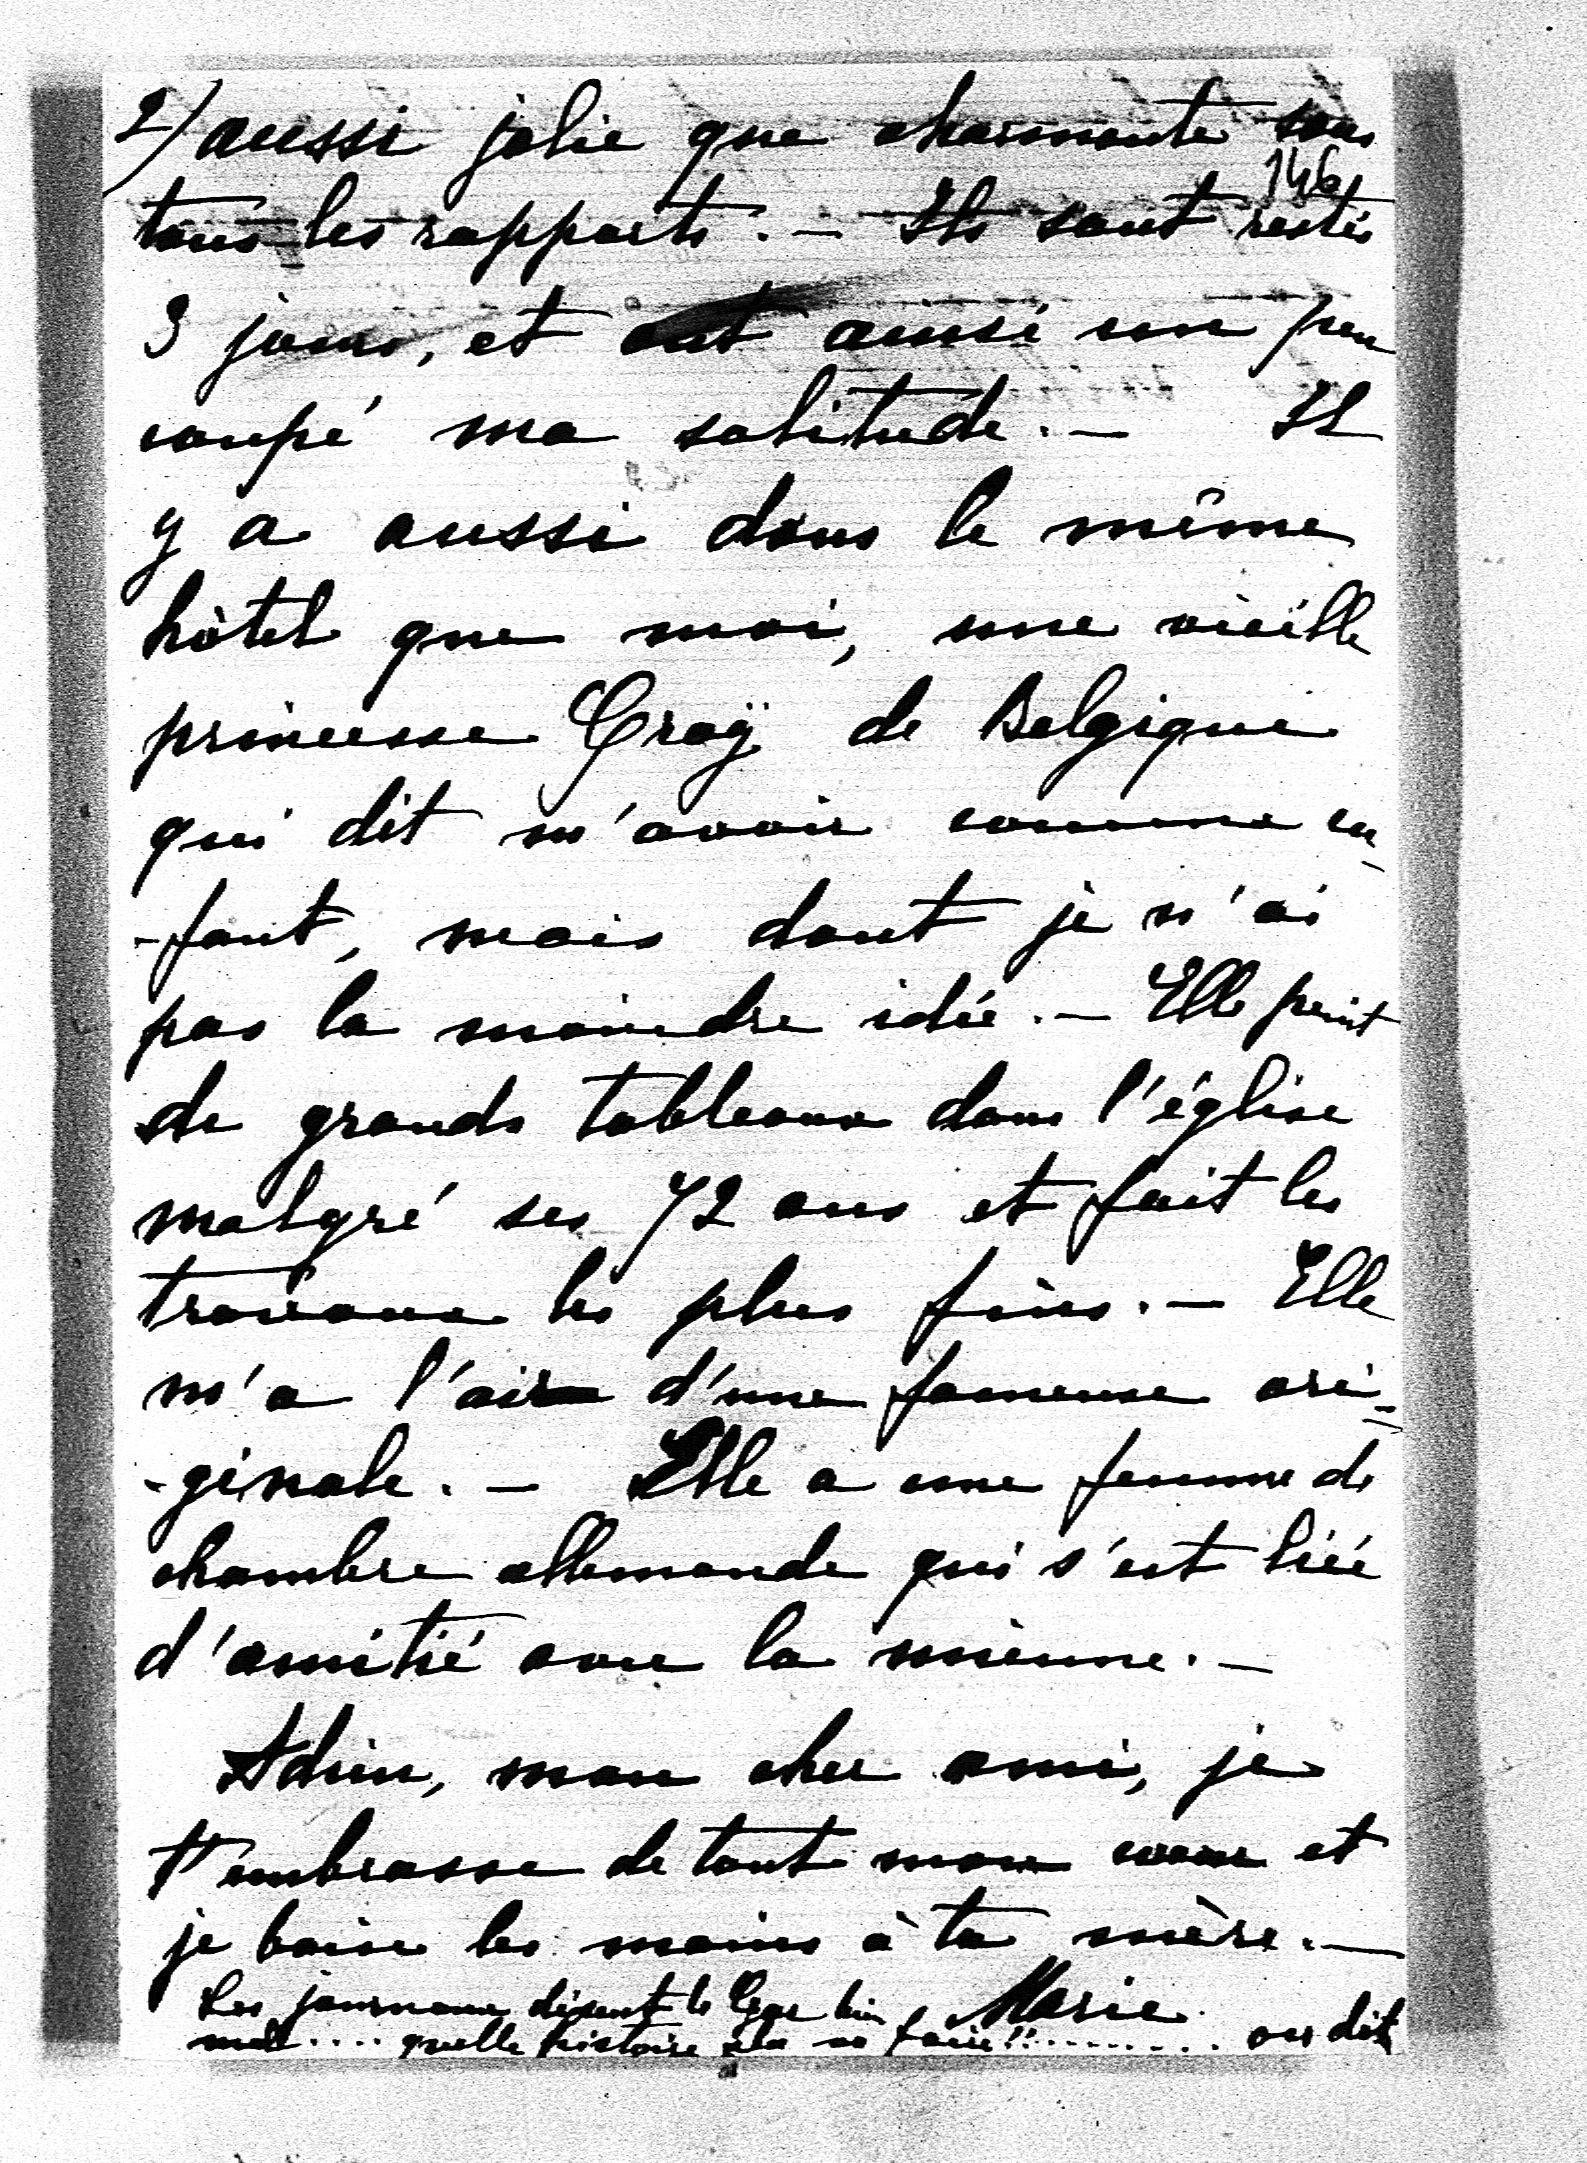 2/ aussi jolie que charmante sous
146
tous les rapports. — Ils sont restés
3 jours, et ont ainsi un peu
coupé ma solitude. — Il
y a aussi dans le même
hôtel que moi, une vieille
princesse Croÿ de Belgique
qui dit m'avoir connue en-
-fant, mais dont je n'ai
pas la moindre idée. — Elle peint
de grands tableaux dans l'église
malgré ses 72 ans et fait les
travaux les plus fins. — Elle
m'a l'air d'une fameuse ori=
-ginale. — Elle a une femme de
chambre allemande qui s'est liée
d'amitié avec la mienne. —
Adieu, mon cher ami, je
t'embrasse de tout mon coeur et
je baise les mains à ta mère. —
Marie.
Les journaux disent le Czar bien
mal .... quelle histoire cela va faire!! .......... on dit